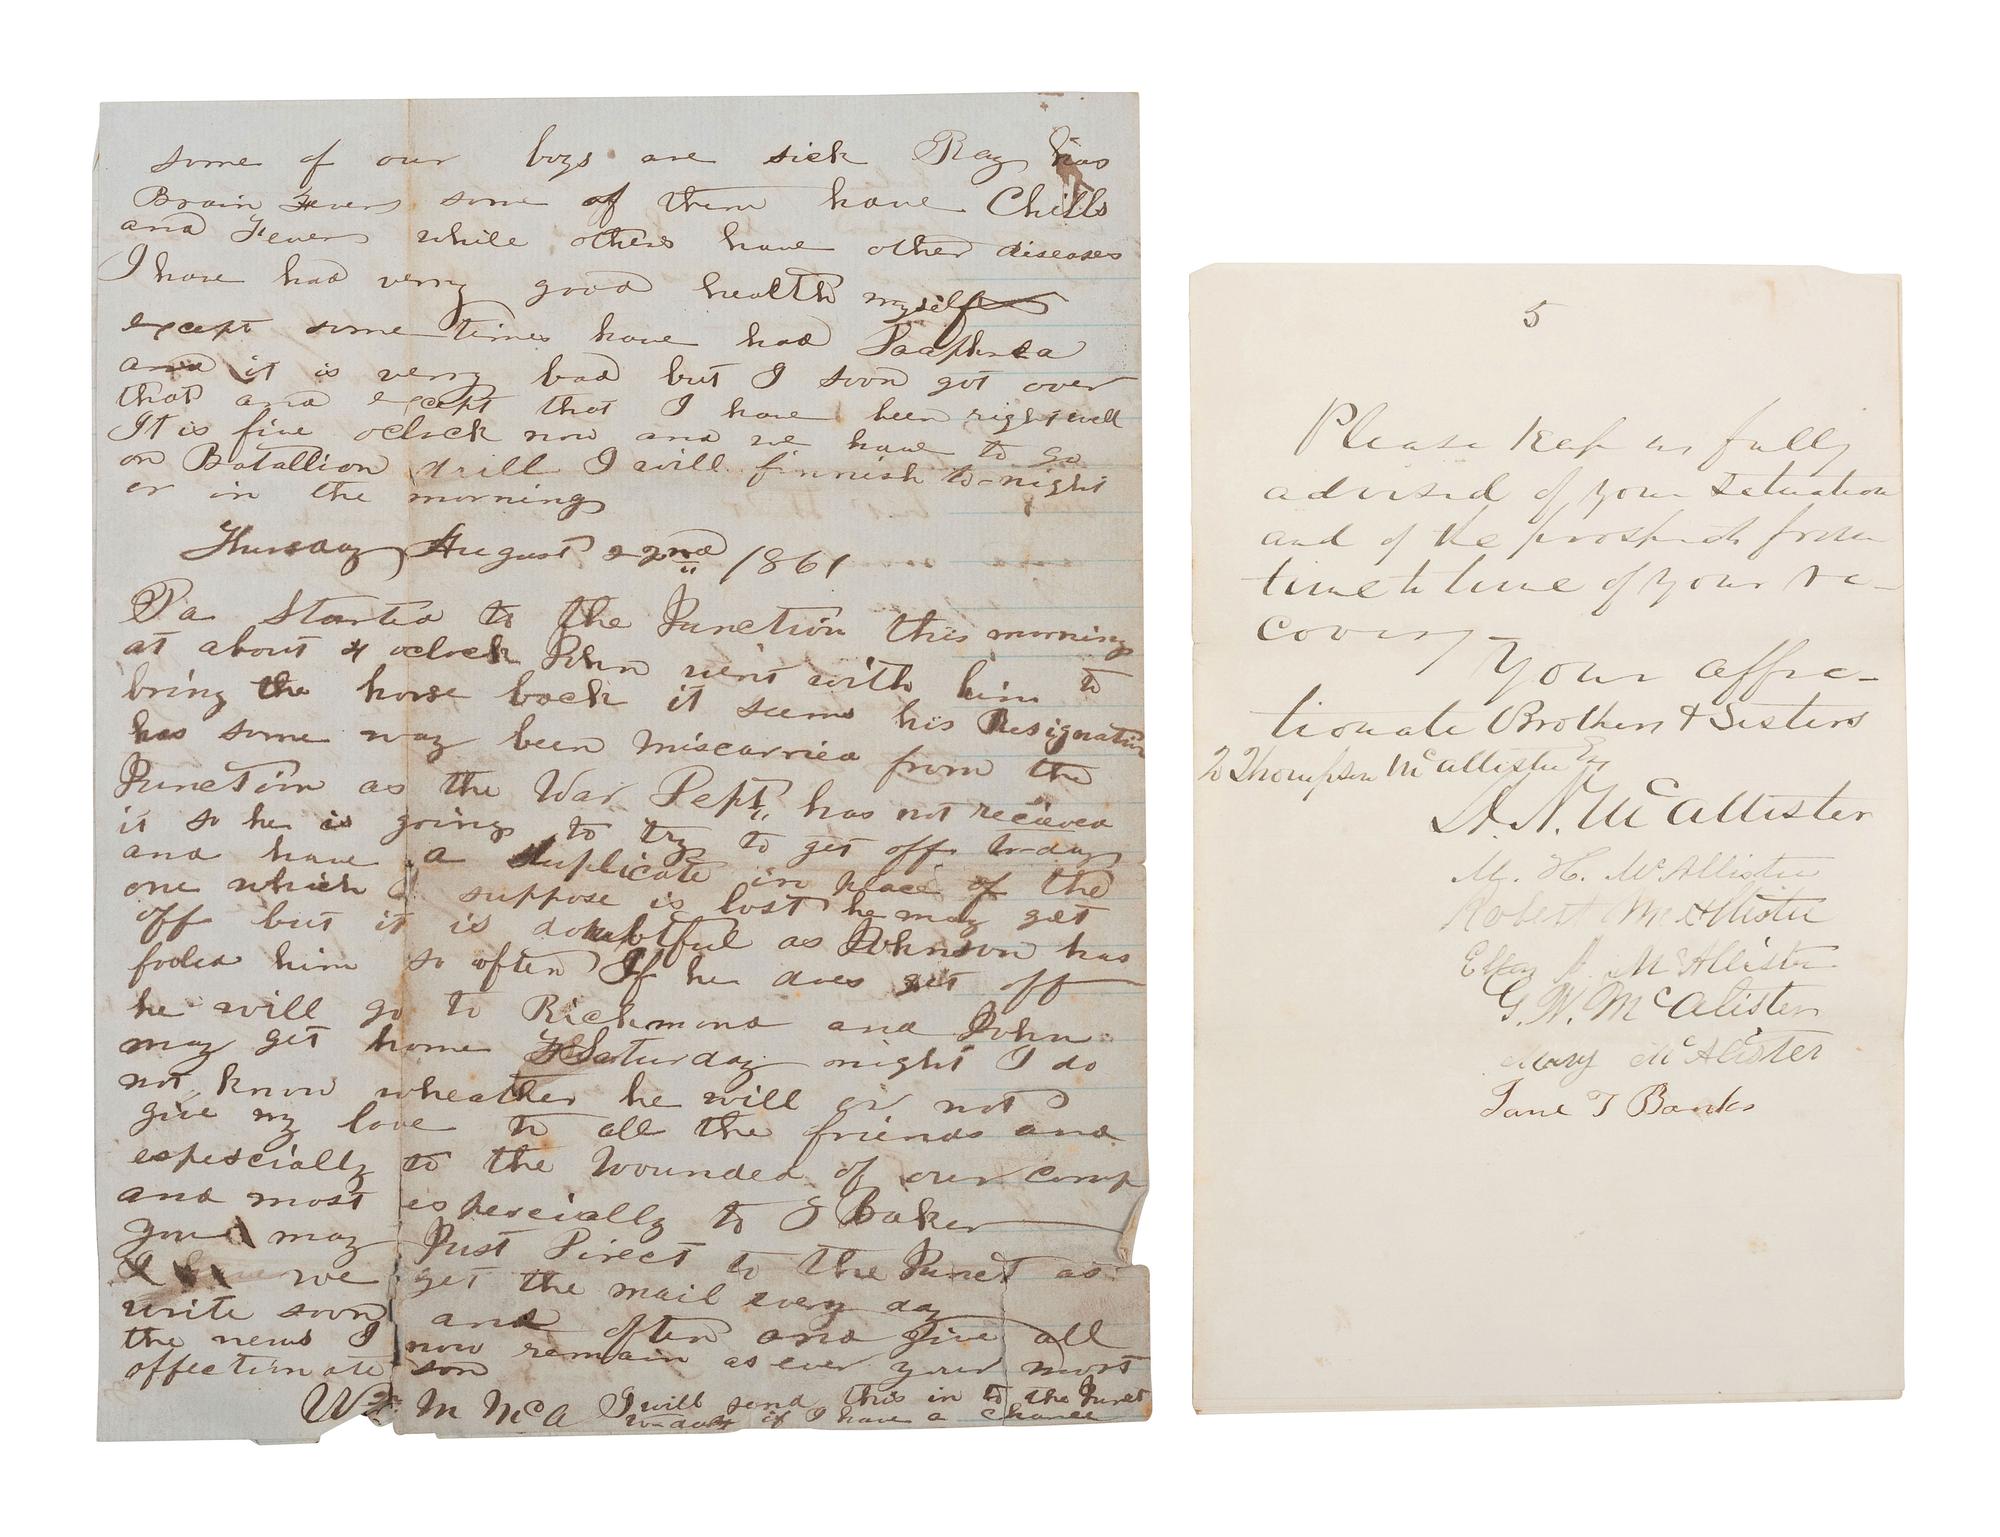 some of our boys are sick Ray has
Brain Fever some of them have Chills
and Fever while others have other diseases
I have had verry good health myself
except some times have had
and it is verry bad but I soon got over
that and except that I have been right well
It is five oclock now and we have to go
on Batallion drill I will finnish to-night
or in the morning
Thursday August 22nd 1861
Pa Started to the Junction this morning
at about 4 oclock John went with him to
bring the horse back it seems his Resignation
has some way been miscarried from the
Junction as the War Dept,, has not recieved
it so he is going to try to get off to-day
and have a duplicate in place of the
one which I suppose is lost he may get
off but it is doubtful as Johnson has
fooled him so often If he does get off
he will go to Richmond and John
may get home Saturday night I do
not know wheather he will or not
give my love to all the friends and
espescially to the Wounded of our comp
and most especially to J Baker
you may Just Direct to the Junct as
we get the mail every day
write soon and often and give all
the news I now remain as ever your most
affectionate son
Wm M McA I will send this in to the Junct
to-day if I have a chance
5
Please keep us fully
advised of your situation
and of the prospects from
time to time of your re-
covery
Your affec-
tionate Brothers & Sisters
To Thompson McAllister Esq
H. N. McAllister
M. H. McAllister
Robert McAllister
McAllister
G. W. McAlister
Mary McAlister
Jane T Banks